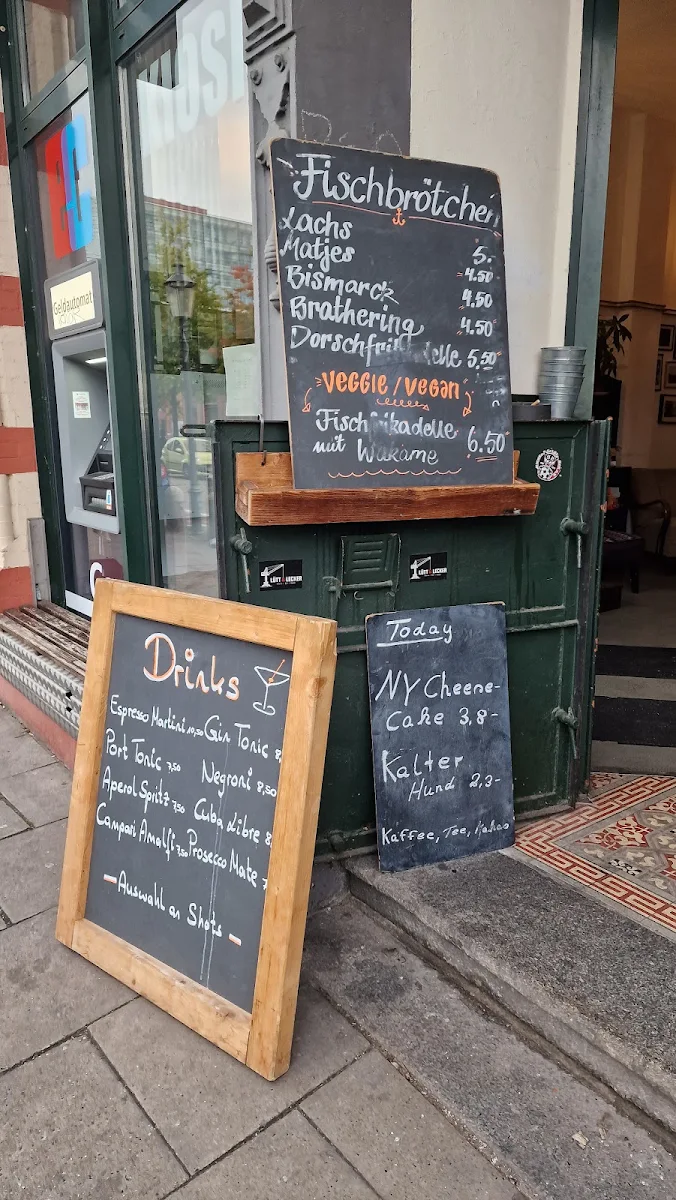 KIOSK
Geldautomat
Fischbrötchen
Lachs 5.-
Matjes 4.50
Bismarck 4.50
Brathering 4.50
Dorschfrikadelle 5.50
VEGGIE / VEGAN
Fischfrikadelle 6.50
mit Wakame
LÜTT & LECKER
LÜTT & LECKER
Today
NY Cheene-
Cake 3,8-
Kalter
Hund 2,3-
Kaffee, Tee, Kakao
Drinks
Espresso Martini 10,50 Gin Tonic 8,
Port Tonic 7,50 Negroni 8,50
Aperol Spritz 7,50 Cuba Libre 8,
Campari Amalfi 7,50 Prosecco Mate 7
- Auswahl an Shots -